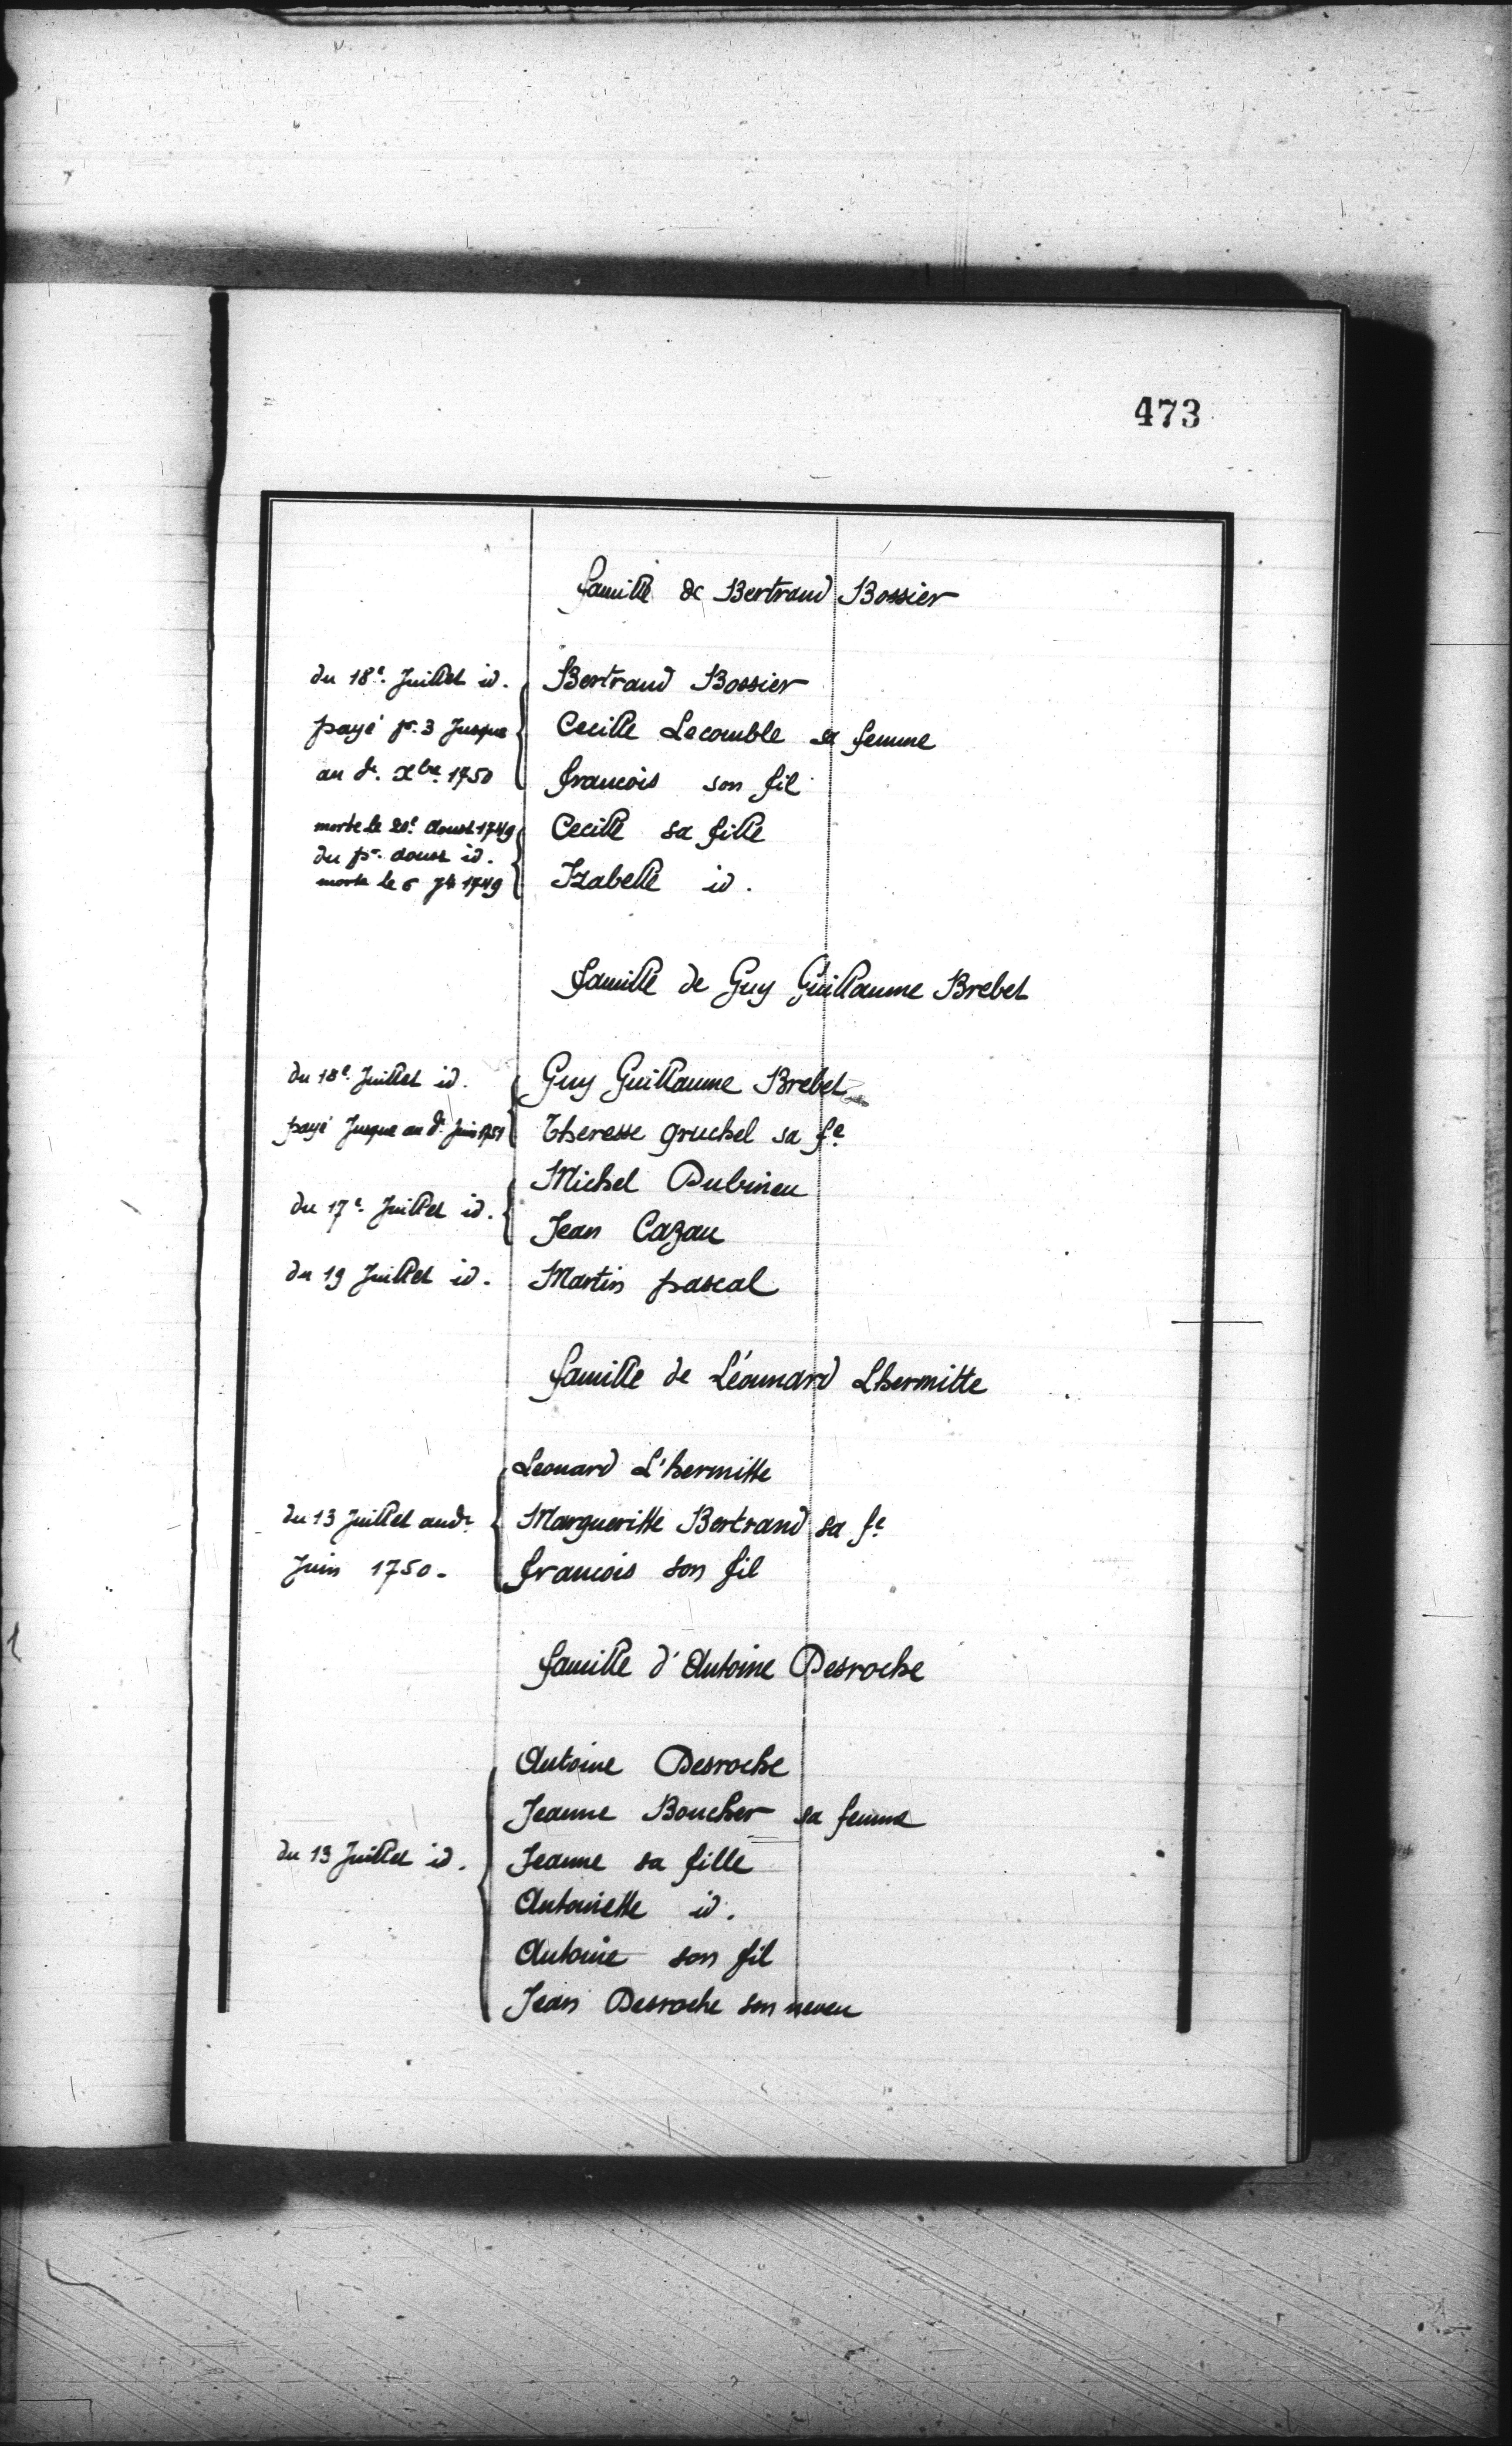 473
famille de Bertrand Bossier
du 18e. Juillet id. Bertrand Bossier
payé pr. 3 Jusque Cecille Lecomble sa femme
au dr. Xbre. 1750 francois son fil
morte le 20e. aoust 1749 Cecille sa fille
du pr. aoust id.
morte le 6 7b 1749 Izabelle id.
famille de Guy Guillaume Brebet
du 18e. Juillet id. Guy Guillaume Brebet
payé Jusque au dr. Juin 1751 Theresse gruchel sa fe.
Michel Dubineu
du 17e. Juillet id.
Jean Cazau
du 19 Juillet id. Martin pascal
famille de Léonnard Lhermitte
Leonard L'hermitte
du 13 Juillet au dr. Margueritte Bertrand sa fe.
Juin 1750. francois son fil
famille d'Antoine Desroche
Antoine Desroche
Jeanne Boucher sa femme
du 13 Juillet id. Jeanne sa fille
Antoinette id.
Antoine son fil
Jean Desroche son neveu